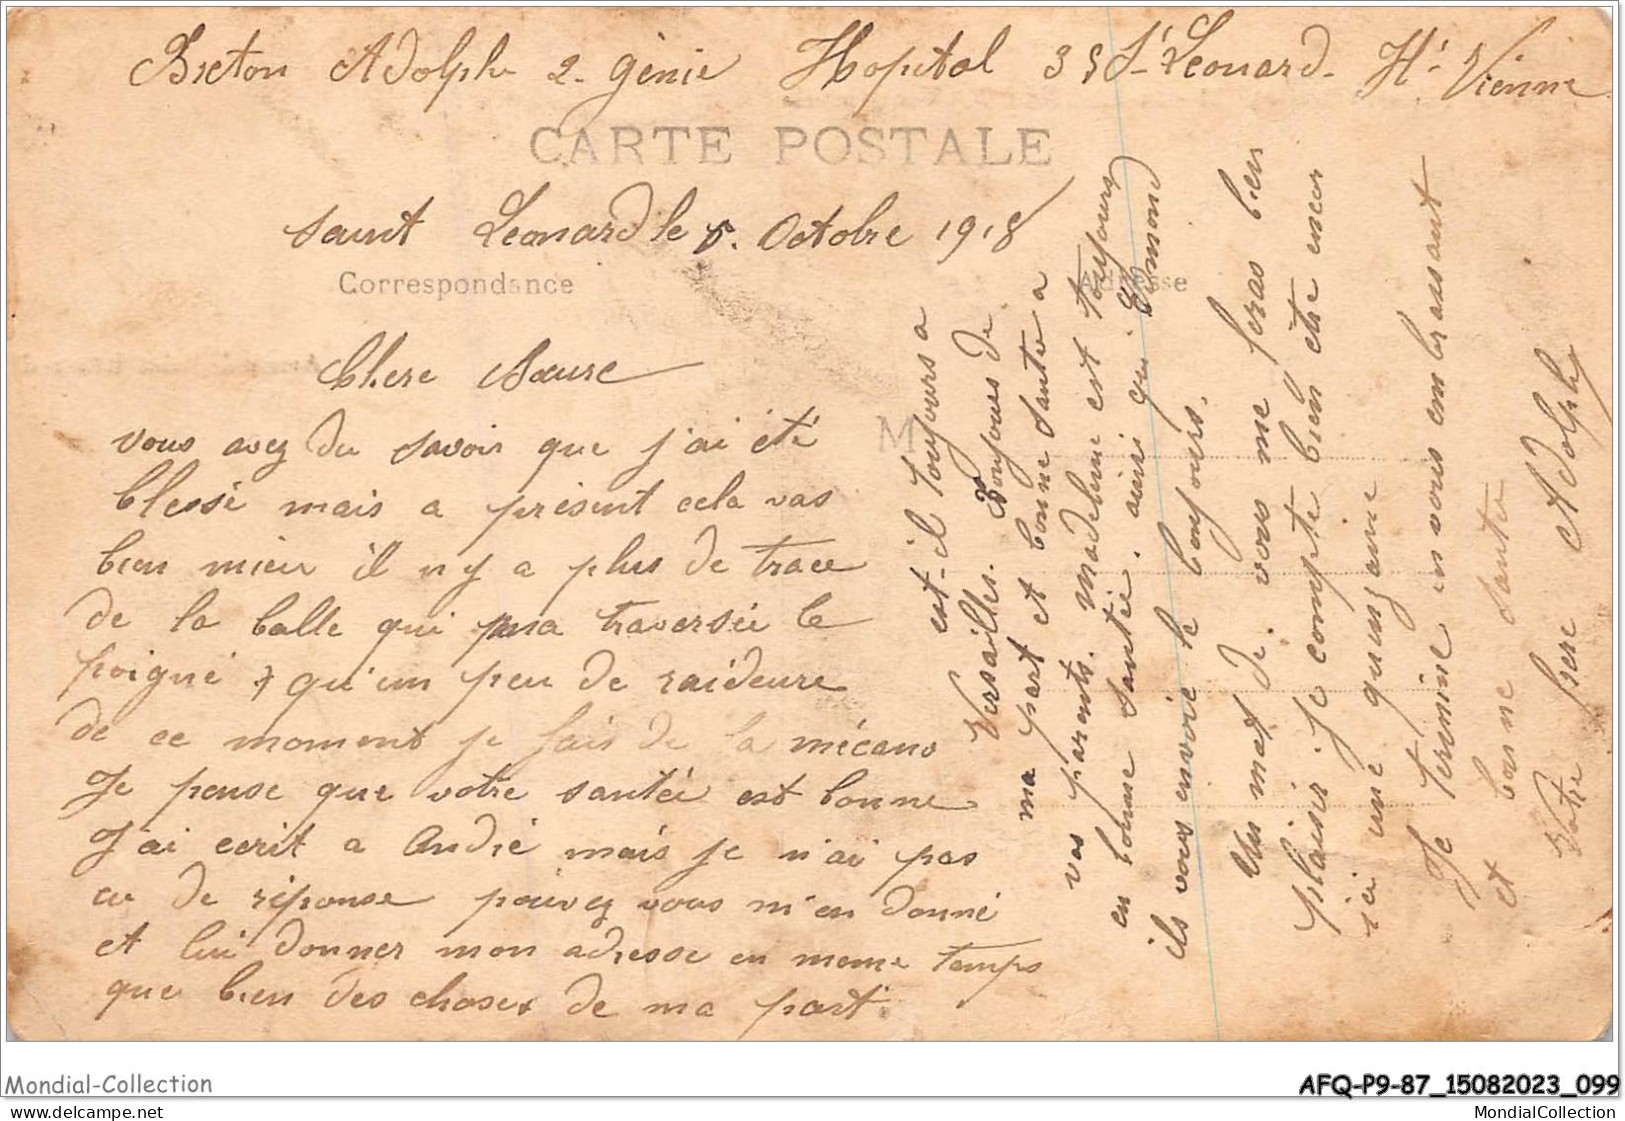 Breton Adolphe 2. génie Hopital 35 St Leonard. Hte Vienne
CARTE POSTALE
Saint Leonard le 5. Octobre 1918
Correspondance
Adresse
Chere Soeure
M
vous avez du savoir que j'ai été
blessé mais a présent cela vas
bien mieu il n y a plus de trace
de la balle qui ma traversée le
poigné qu'un peu de raideure
de ce moment je fais de la mécano
Je pense que votre santée est bonne
J'ai ecrit a André mais je n'ai pas
eu de réponse pouvez vous m'en donné
et lui donner mon adresse en meme temps
que bien des choses de ma part
est-il toujours a
Versailles. Bonjours de
ma part et bonne santée a
vos parents. Madeleine est toujours
en bonne santée. ainsi qui Edmond
ils vous envoie le bonjours.
Un mot de vous me feras bien
plaisir. Je compte bien être encor
ici une quinzaine
Je termine en vous embrassant
et bonne santée
Votre frere Adolphe
Mondial-Collection
AFQ-P9-87_15082023_099
www.delcampe.net
MondialCollection